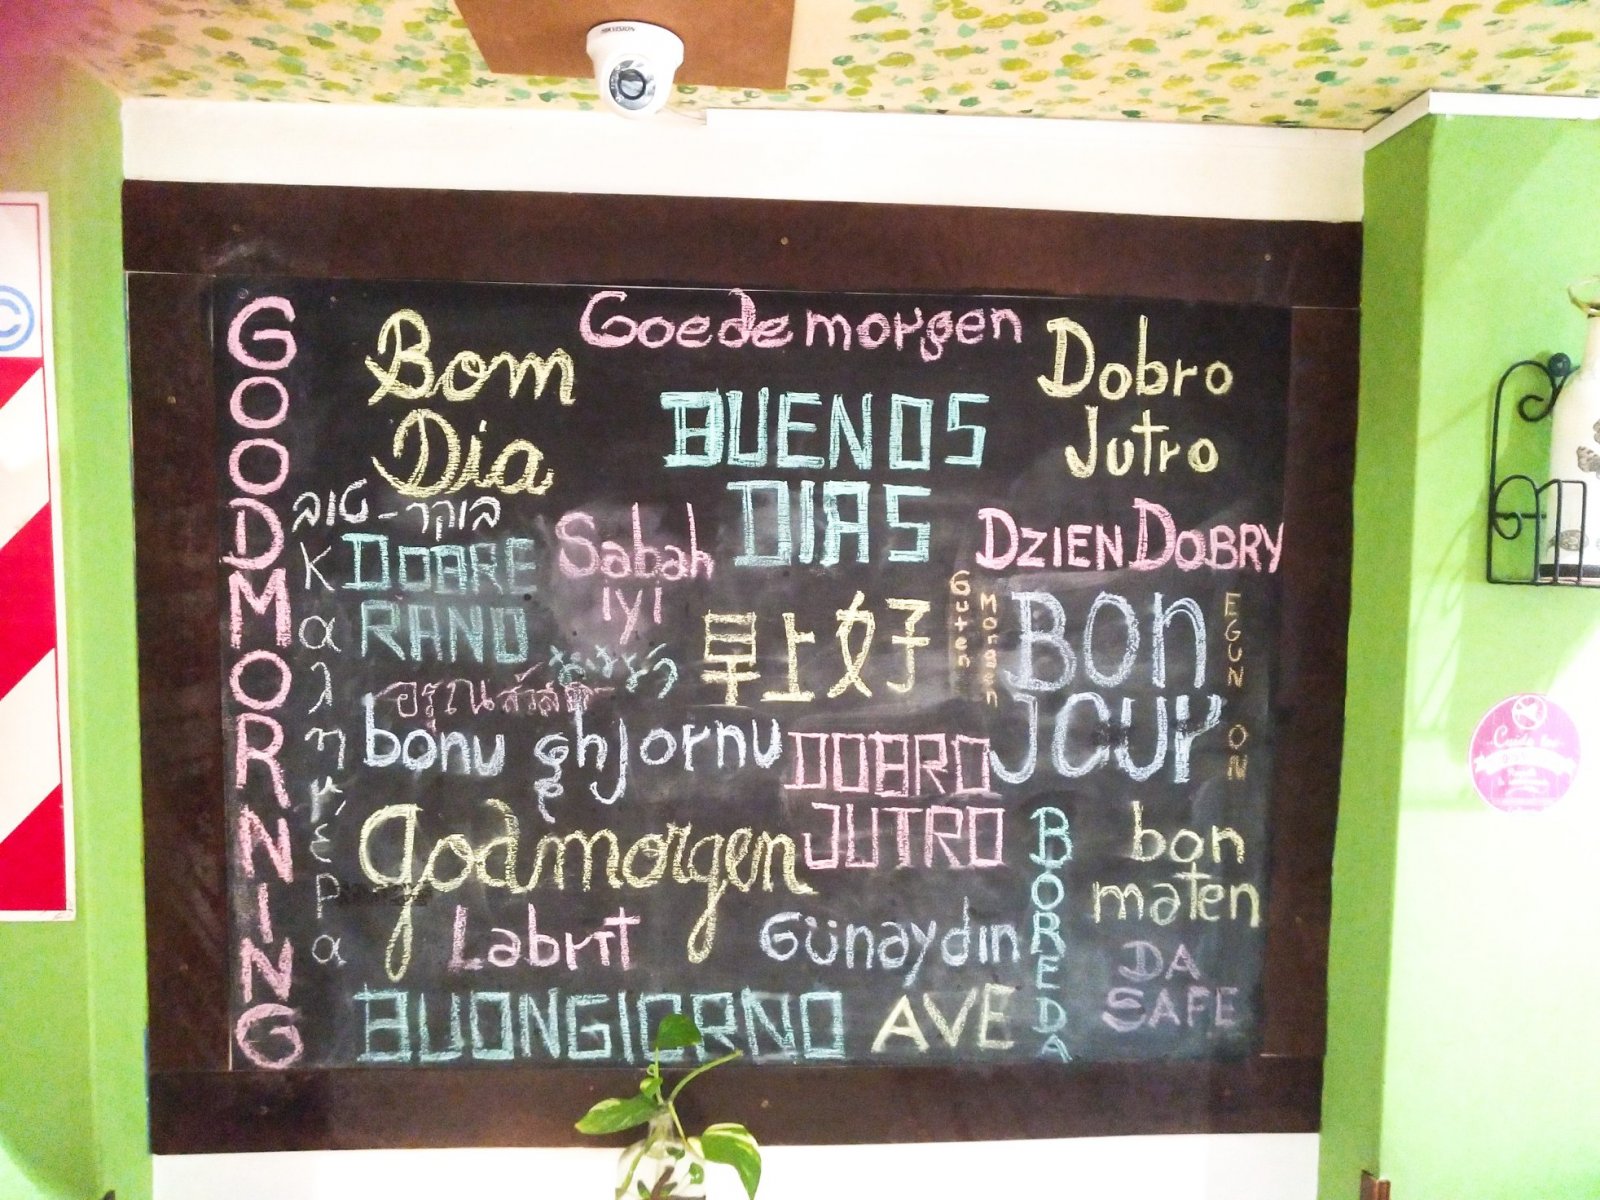 HIKVISION
GOODMORNING
Bom
Dia
Goedemorgen
BUENOS
DIAS
Dobro
Jutro
בוקר-טוב
Καλημέρα
DOBRE
RANO
Sabah
iyi
DZIEN DOBRY
早上好
Guten
Morgen
BON
JOUR
EGUN ON
อรุณสวัสดิ์
bonu ghjornu
DOBRO
JUTRO
godmorgen
BOREDA
bon
maten
Labrit
Günaydın
DA
SAFE
BUONGIORNO
AVE